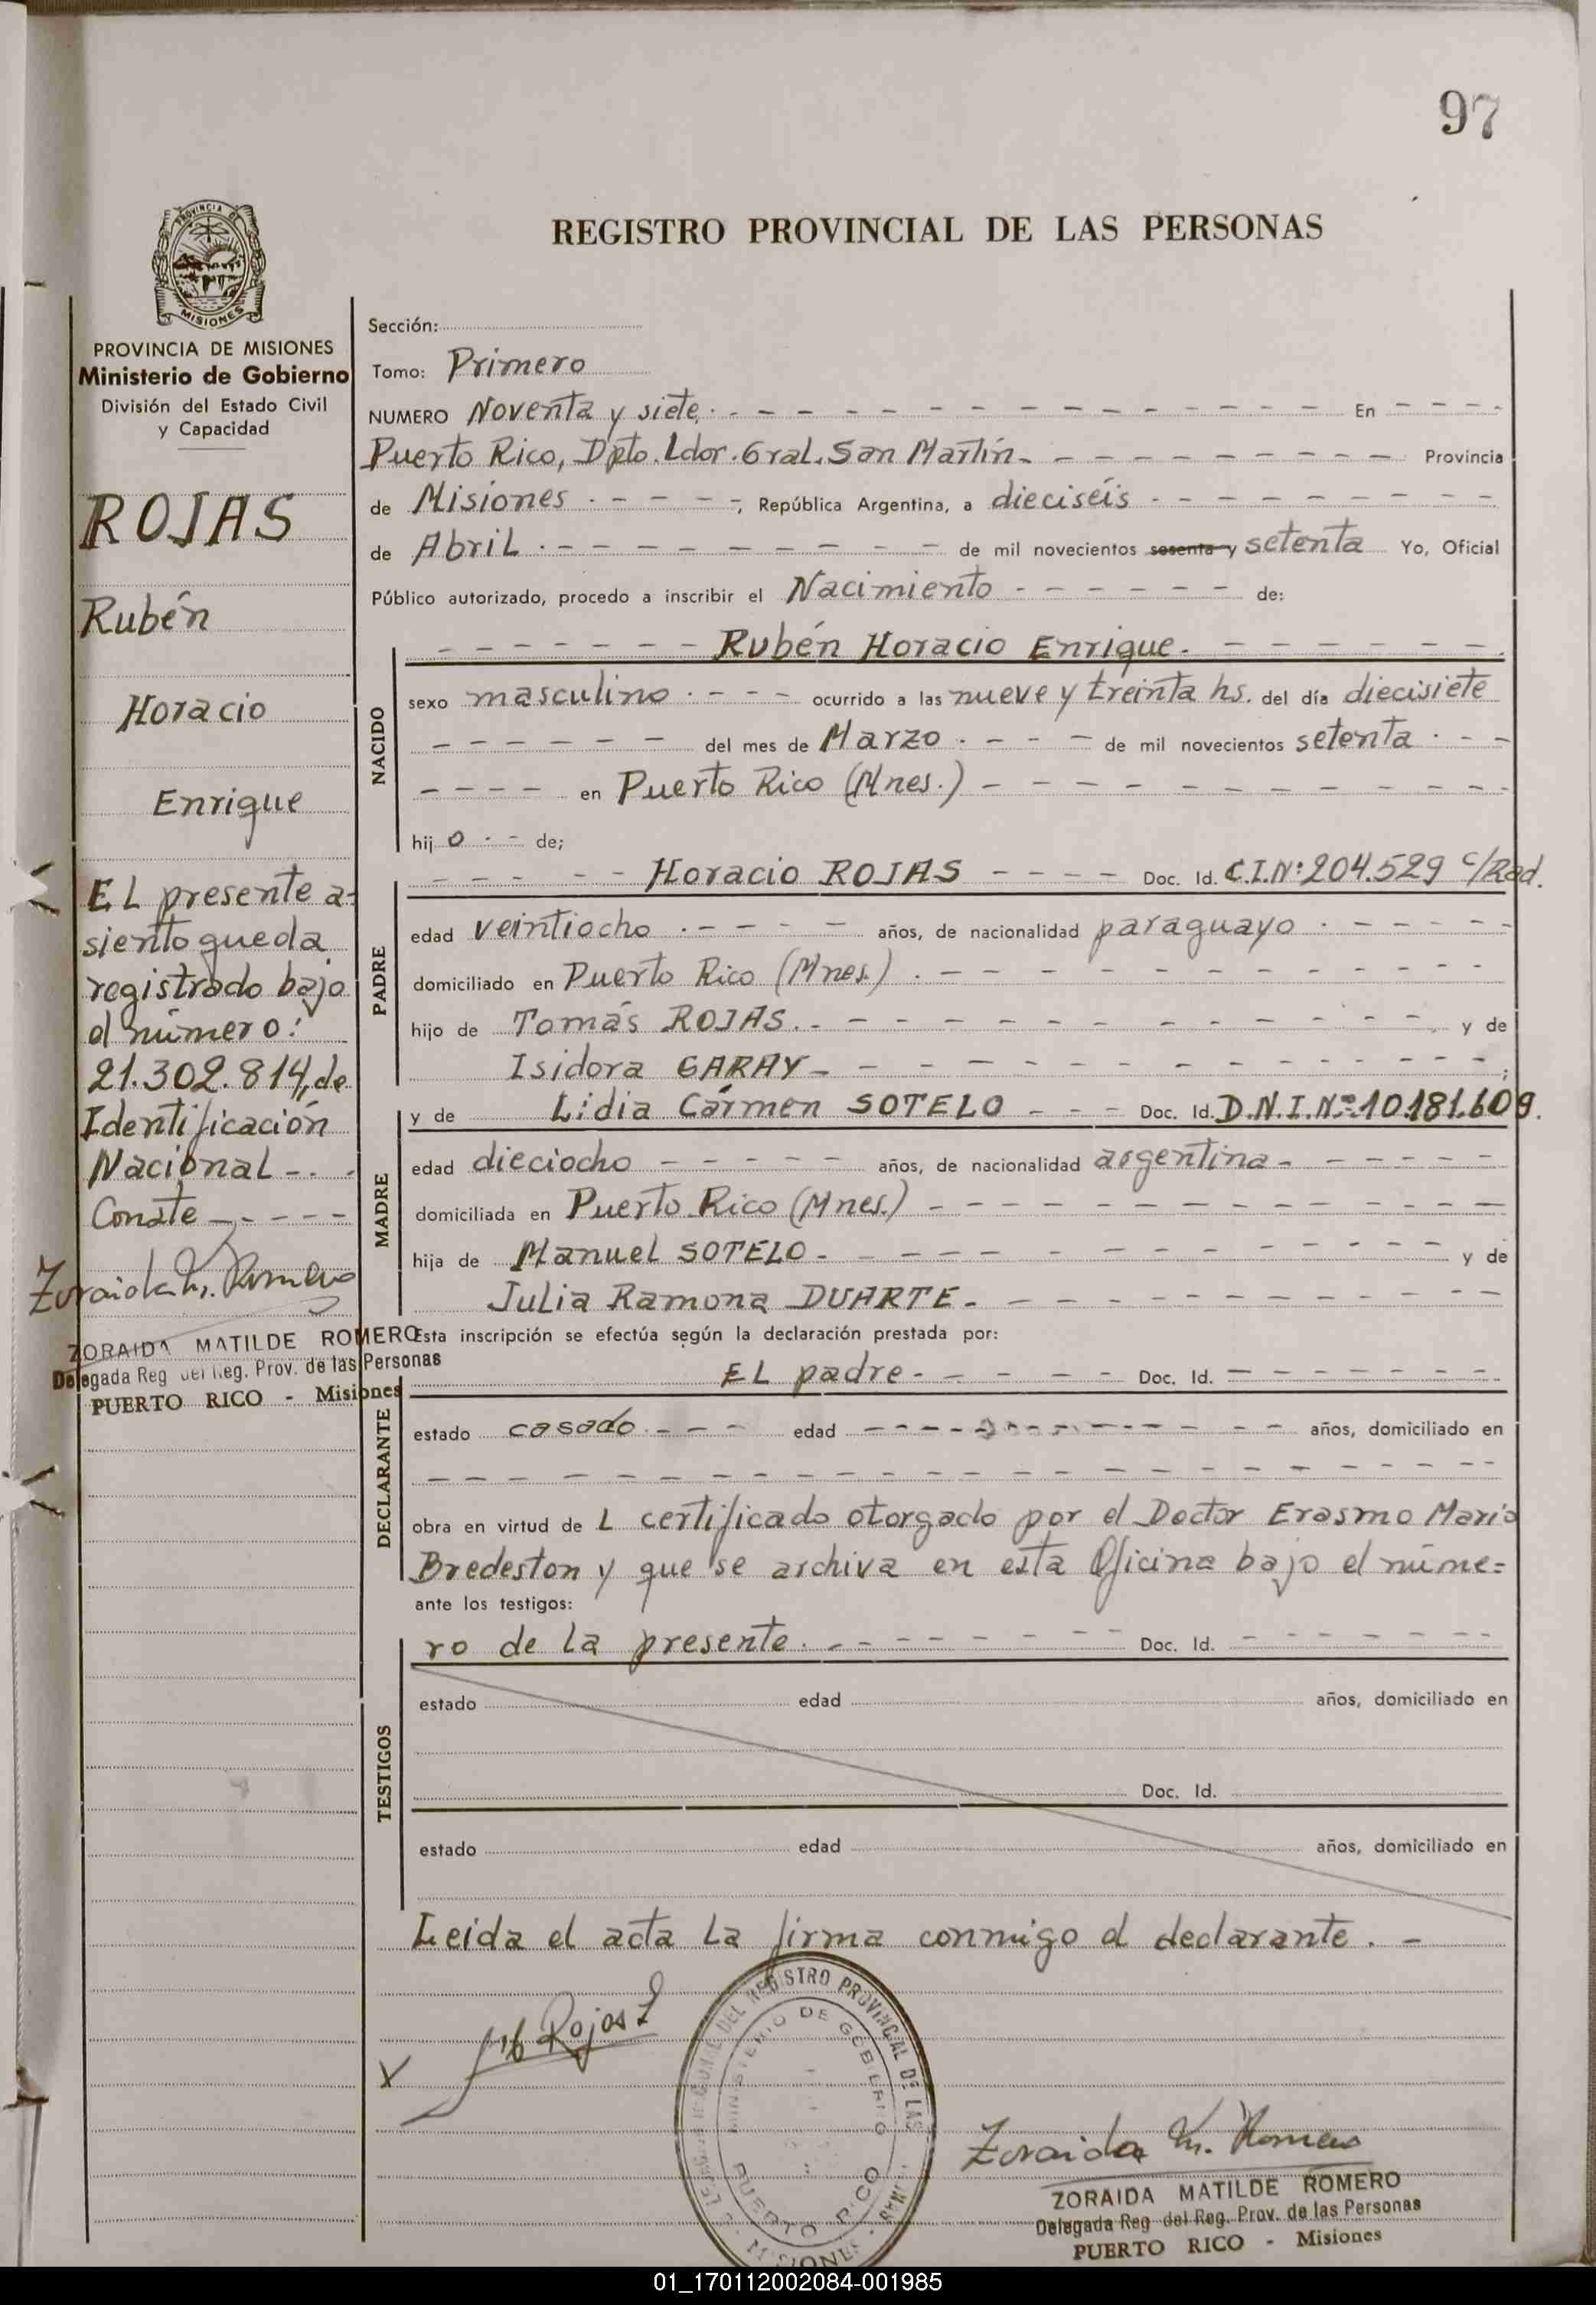 97
REGISTRO PROVINCIAL DE LAS PERSONAS
PROVINCIA DE
MISIONES
PROVINCIA DE MISIONES
Ministerio de Gobierno
División del Estado Civil
y Capacidad
ROJAS
Rubén
Horacio
Enrique
EL presente a=
siento queda
registrado bajo
el número:
21.302.814, de
Identificación
Nacional - . -
Conste - - - - -
Zoraida M. Romero
ZORAIDA MATILDE ROMERO
Delegada Reg del Reg. Prov. de las Personas
PUERTO RICO - Misiones
Sección:
Tomo: Primero
NUMERO Noventa y siete. - - - - - - - En - - - -
Puerto Rico, Dpto. Ldor. Gral. San Martín. - - - - - - Provincia
de Misiones . - - - -, República Argentina, a dieciséis - - - - - -
de Abril . - - - - - - - - de mil novecientos sesenta y setenta Yo, Oficial
Público autorizado, procedo a inscribir el Nacimiento - - - - - - de:
- - - - - - Rubén Horacio Enrique. - - - - - -
NACIDO
sexo masculino . - - - ocurrido a las nueve y treinta hs. del día diecisiete
- - - - - - del mes de Marzo . - - - de mil novecientos setenta . - -
- - - - en Puerto Rico (Mnes.) - - - - - - - -
hijo . - de;
- - - - - Horacio ROJAS - - - - Doc. Id. C.I.Nº:204.529 c/Rad.
PADRE
edad veintiocho . - - - - años, de nacionalidad paraguayo . - - - - -
domiciliado en Puerto Rico (Mnes.) . - - - - - - - -
hijo de Tomás ROJAS. - - - - - - - - y de
Isidora GARAY - - - - - - - - - ;
y de Lidia Cármen SOTELO - - - Doc. Id. D.N.I.Nº:10.181.609.
MADRE
edad dieciocho - - - - - años, de nacionalidad argentina - - - - - -
domiciliada en Puerto Rico (Mnes.) - - - - - - - -
hija de Manuel SOTELO - - - - - - - - y de
Julia Ramona DUARTE. - - - - - - - -
Esta inscripción se efectúa según la declaración prestada por:
EL padre - - - - - Doc. Id. - - - - - -
DECLARANTE
estado casado . - - - edad - - - - - - - - - - años, domiciliado en
- - - - - - - - - - - - - - - -
obra en virtud de L certificado otorgado por el Doctor Erasmo Mario
Bredeston y que se archiva en esta Oficina bajo el núme=
ante los testigos:
ro de la presente. - - - - - - - - Doc. Id. - - - - - -
TESTIGOS
estado edad años, domiciliado en
Doc. Id.
estado edad años, domiciliado en
Leida el acta La firma conmigo el declarante. -
X Rojas
REGISTRO PROVINCIAL DE LAS
MINISTERIO DE GOBIERNO
PUERTO RICO
MISIONES
Zoraida M. Romero
ZORAIDA MATILDE ROMERO
Delegada Reg del Reg. Prov. de las Personas
PUERTO RICO - Misiones
01_170112002084-001985